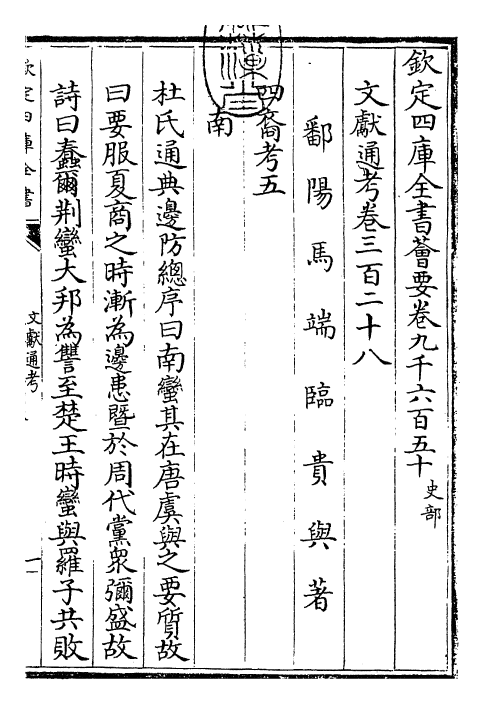 欽定四庫全書薈要卷九千六百五十史部
文獻通考卷三百二十八
鄱陽馬端臨貴與著
四裔考五
南
杜氏通典邊防總序曰南蠻其在唐虞與之要質故
曰要服夏商之時漸為邊患暨於周代黨衆彌盛故
詩曰蠢爾荆蠻大邦為讐至楚王時蠻與羅子共敗
欽定四庫全書
文獻通考
一